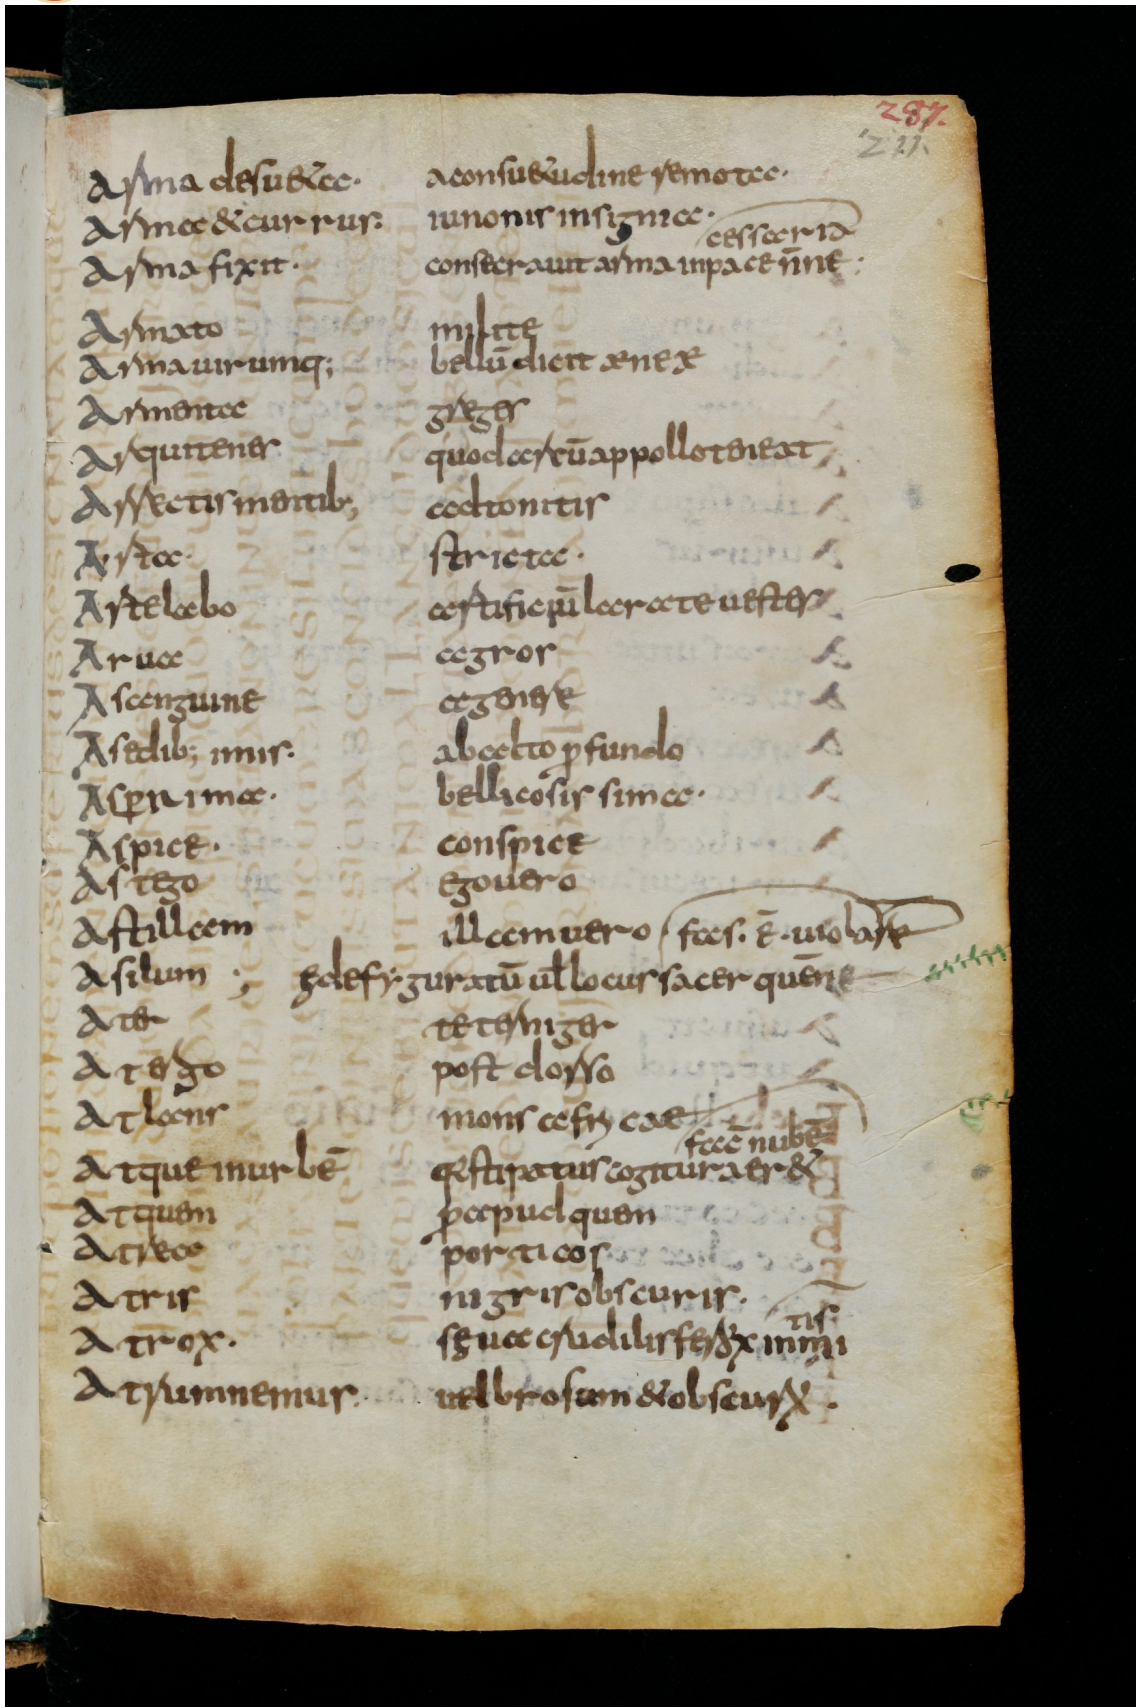 287.
211.
Arma desu&a· aconsu&udine remota·
Arma &currus: iunonis insignia·
cessaria
Arma fixit· consecrauit arma inpace n̄ne·
Armato milite
Armauirumq; bellū dicit aeneae
Armenta greges
Arquitenes quod arcū appollo teneat
Arrectis mentib; adtonitis
Arta· stricta·
Artelabo
Arua agros
Asanguine agenere
Asedib; imis· abalto ꝓfundo
Asprrima· bellicosissima·
Aspice· conspice
Astego egouero
Astillam illam uero fas· ē· uiolare
Asilum ; edefyguratū uł locus sacer quēne
Ater teterniger
Atergo post dorso
Atlans mons afrycae
facē nubē
Atque inurbē questipatus cogitur aer &
Atquem ꝓapud quem
Atrea porticos
Atris nigris obscuris·
tis·
Atrox· seua crudilis ferox inmi
Atrumnemus uelbrosum &obscurū·